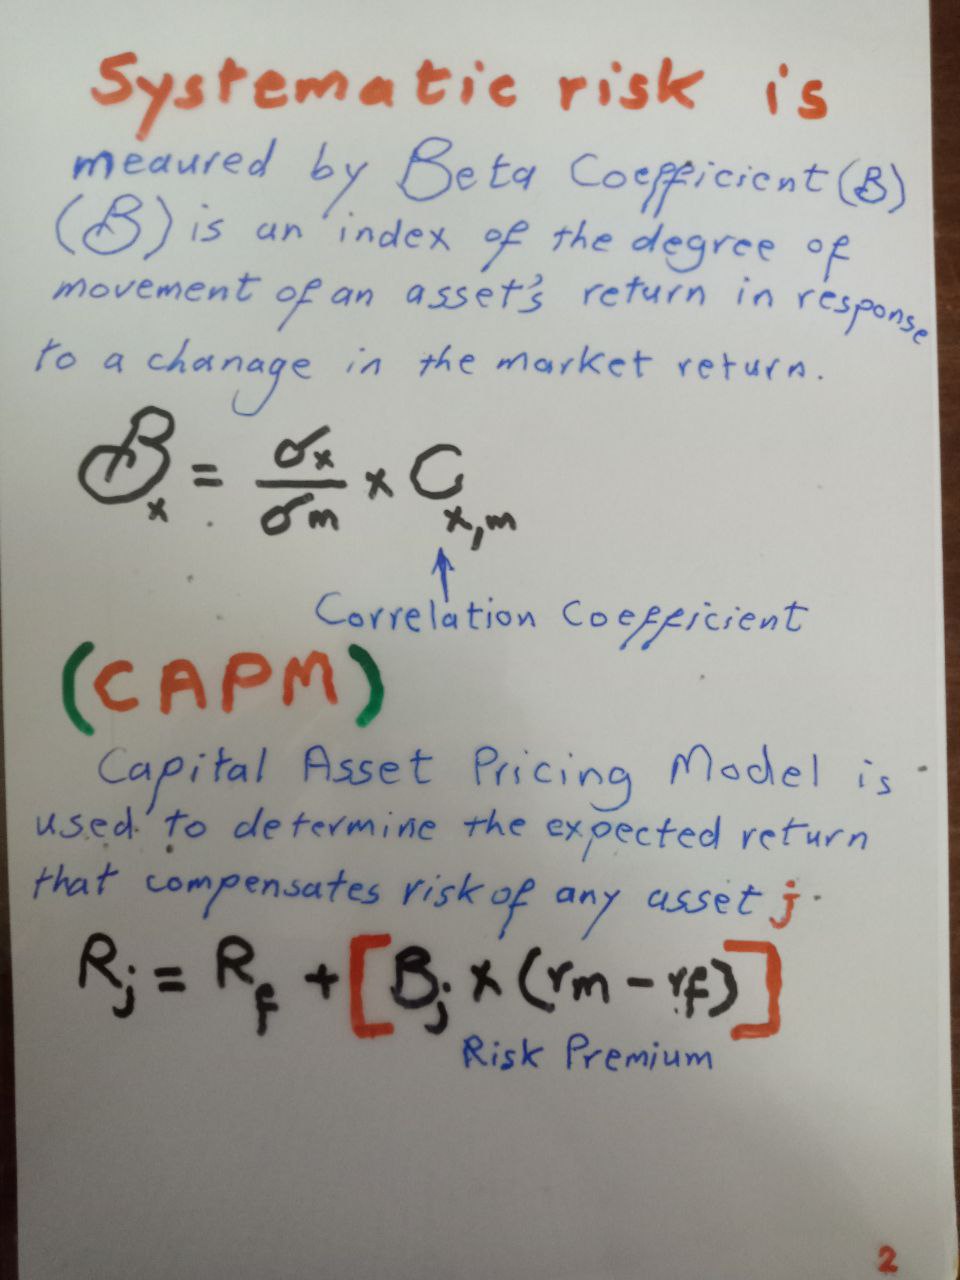 Systematic risk is
meaured by Beta Coefficient (B)
(B) is an index of the degree of
movement of an asset's return in response
to a chanage in the market return.
Bx = σx / σm x C x,m
Correlation Coefficient
(CAPM)
Capital Asset Pricing Model is
used to determine the expected return
that compensates risk of any asset j.
Rj = Rf + [Bj x (rm - rf)]
Risk Premium
2